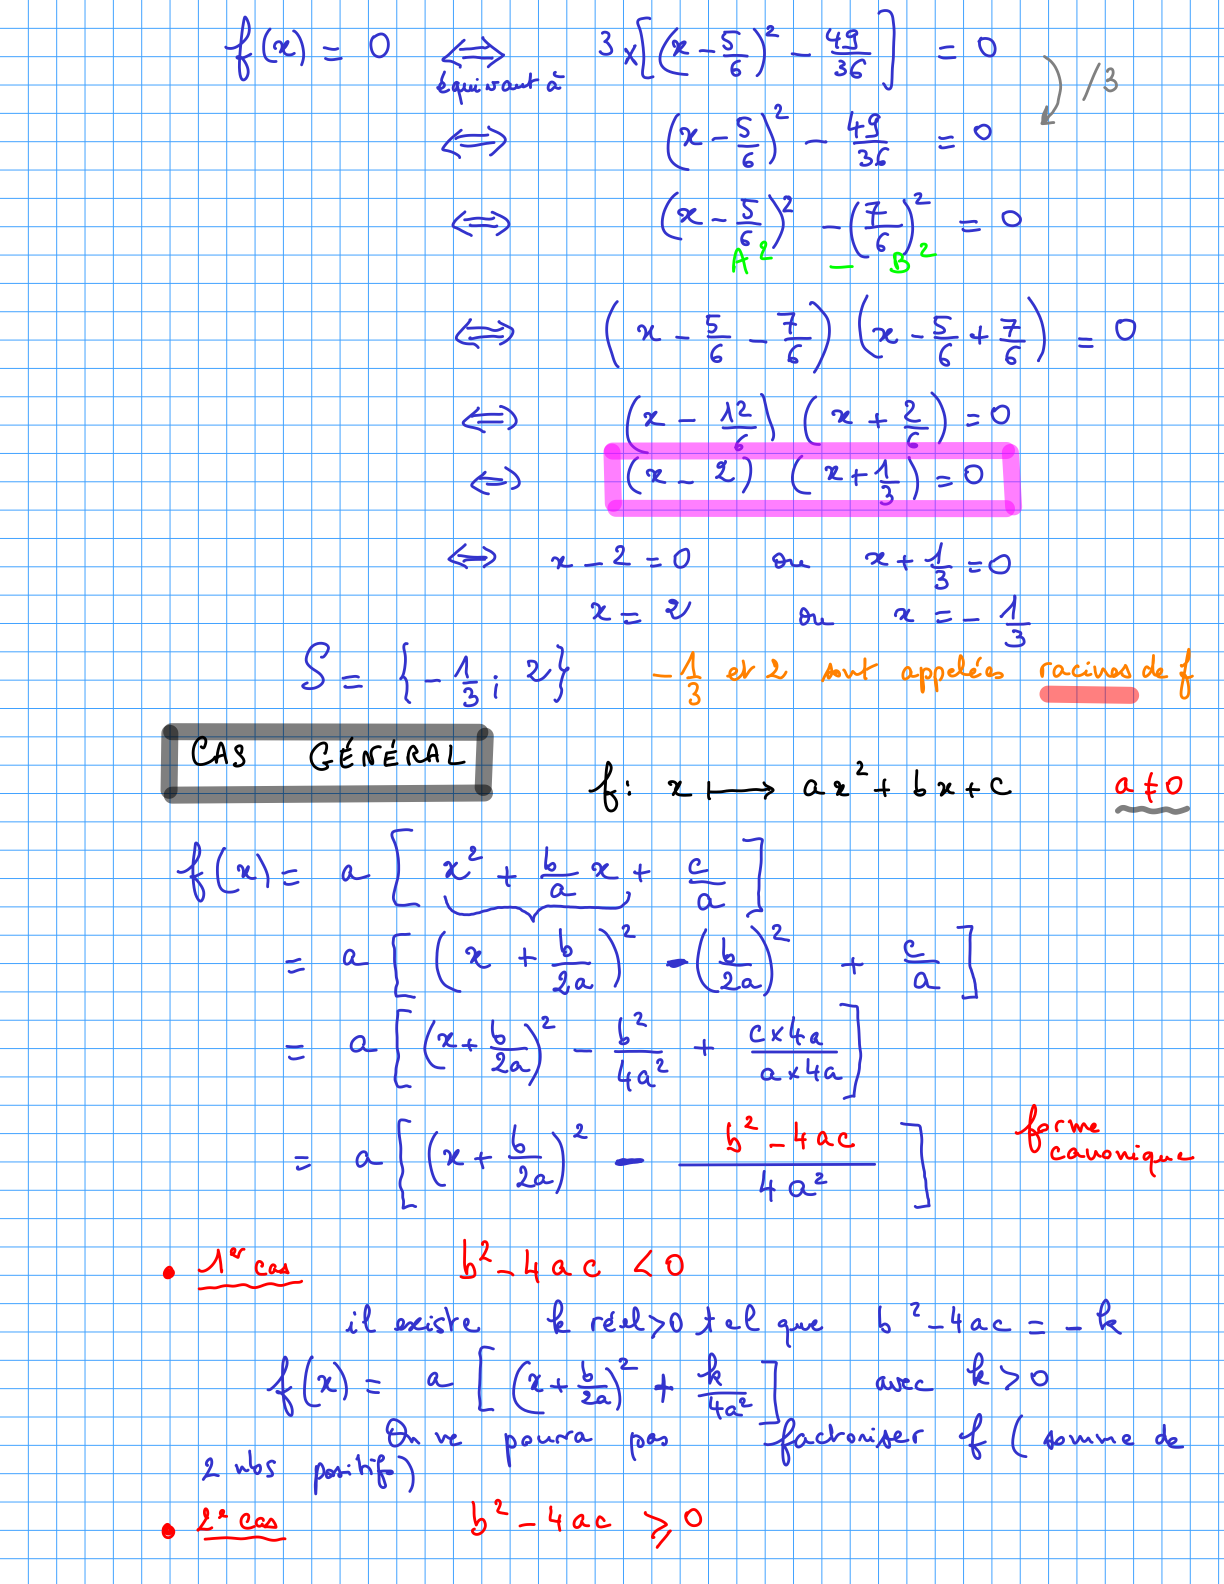 f(x) = 0 ⟺ 3×[(x − 5/6)² − 49/36] = 0
équivaut à
/3
⟺ (x − 5/6)² − 49/36 = 0
⟺ (x − 5/6)² − (7/6)² = 0
A² − B²
⟺ (x − 5/6 − 7/6) (x − 5/6 + 7/6) = 0
⟺ (x − 12/6) (x + 2/6) = 0
⟺ (x − 2) (x + 1/3) = 0
⟺ x − 2 = 0 ou x + 1/3 = 0
x = 2 ou x = − 1/3
S = {− 1/3 ; 2} − 1/3 et 2 sont appelées racines de f
CAS GÉNÉRAL
f : x ⟼ ax² + bx + c a ≠ 0
f(x) = a [x² + b/a x + c/a]
= a [(x + b/2a)² − (b/2a)² + c/a]
= a [(x + b/2a)² − b²/4a² + c×4a/a×4a]
= a [(x + b/2a)² − b² − 4ac/4a²] forme
canonique
• 1er cas b² − 4ac < 0
il existe k réel > 0 tel que b² − 4ac = − k
f(x) = a [(x + b/2a)² + k/4a²] avec k > 0
On ne pourra pas factoriser f (somme de
2 nbs positifs)
• 2e cas b² − 4ac ⩾ 0